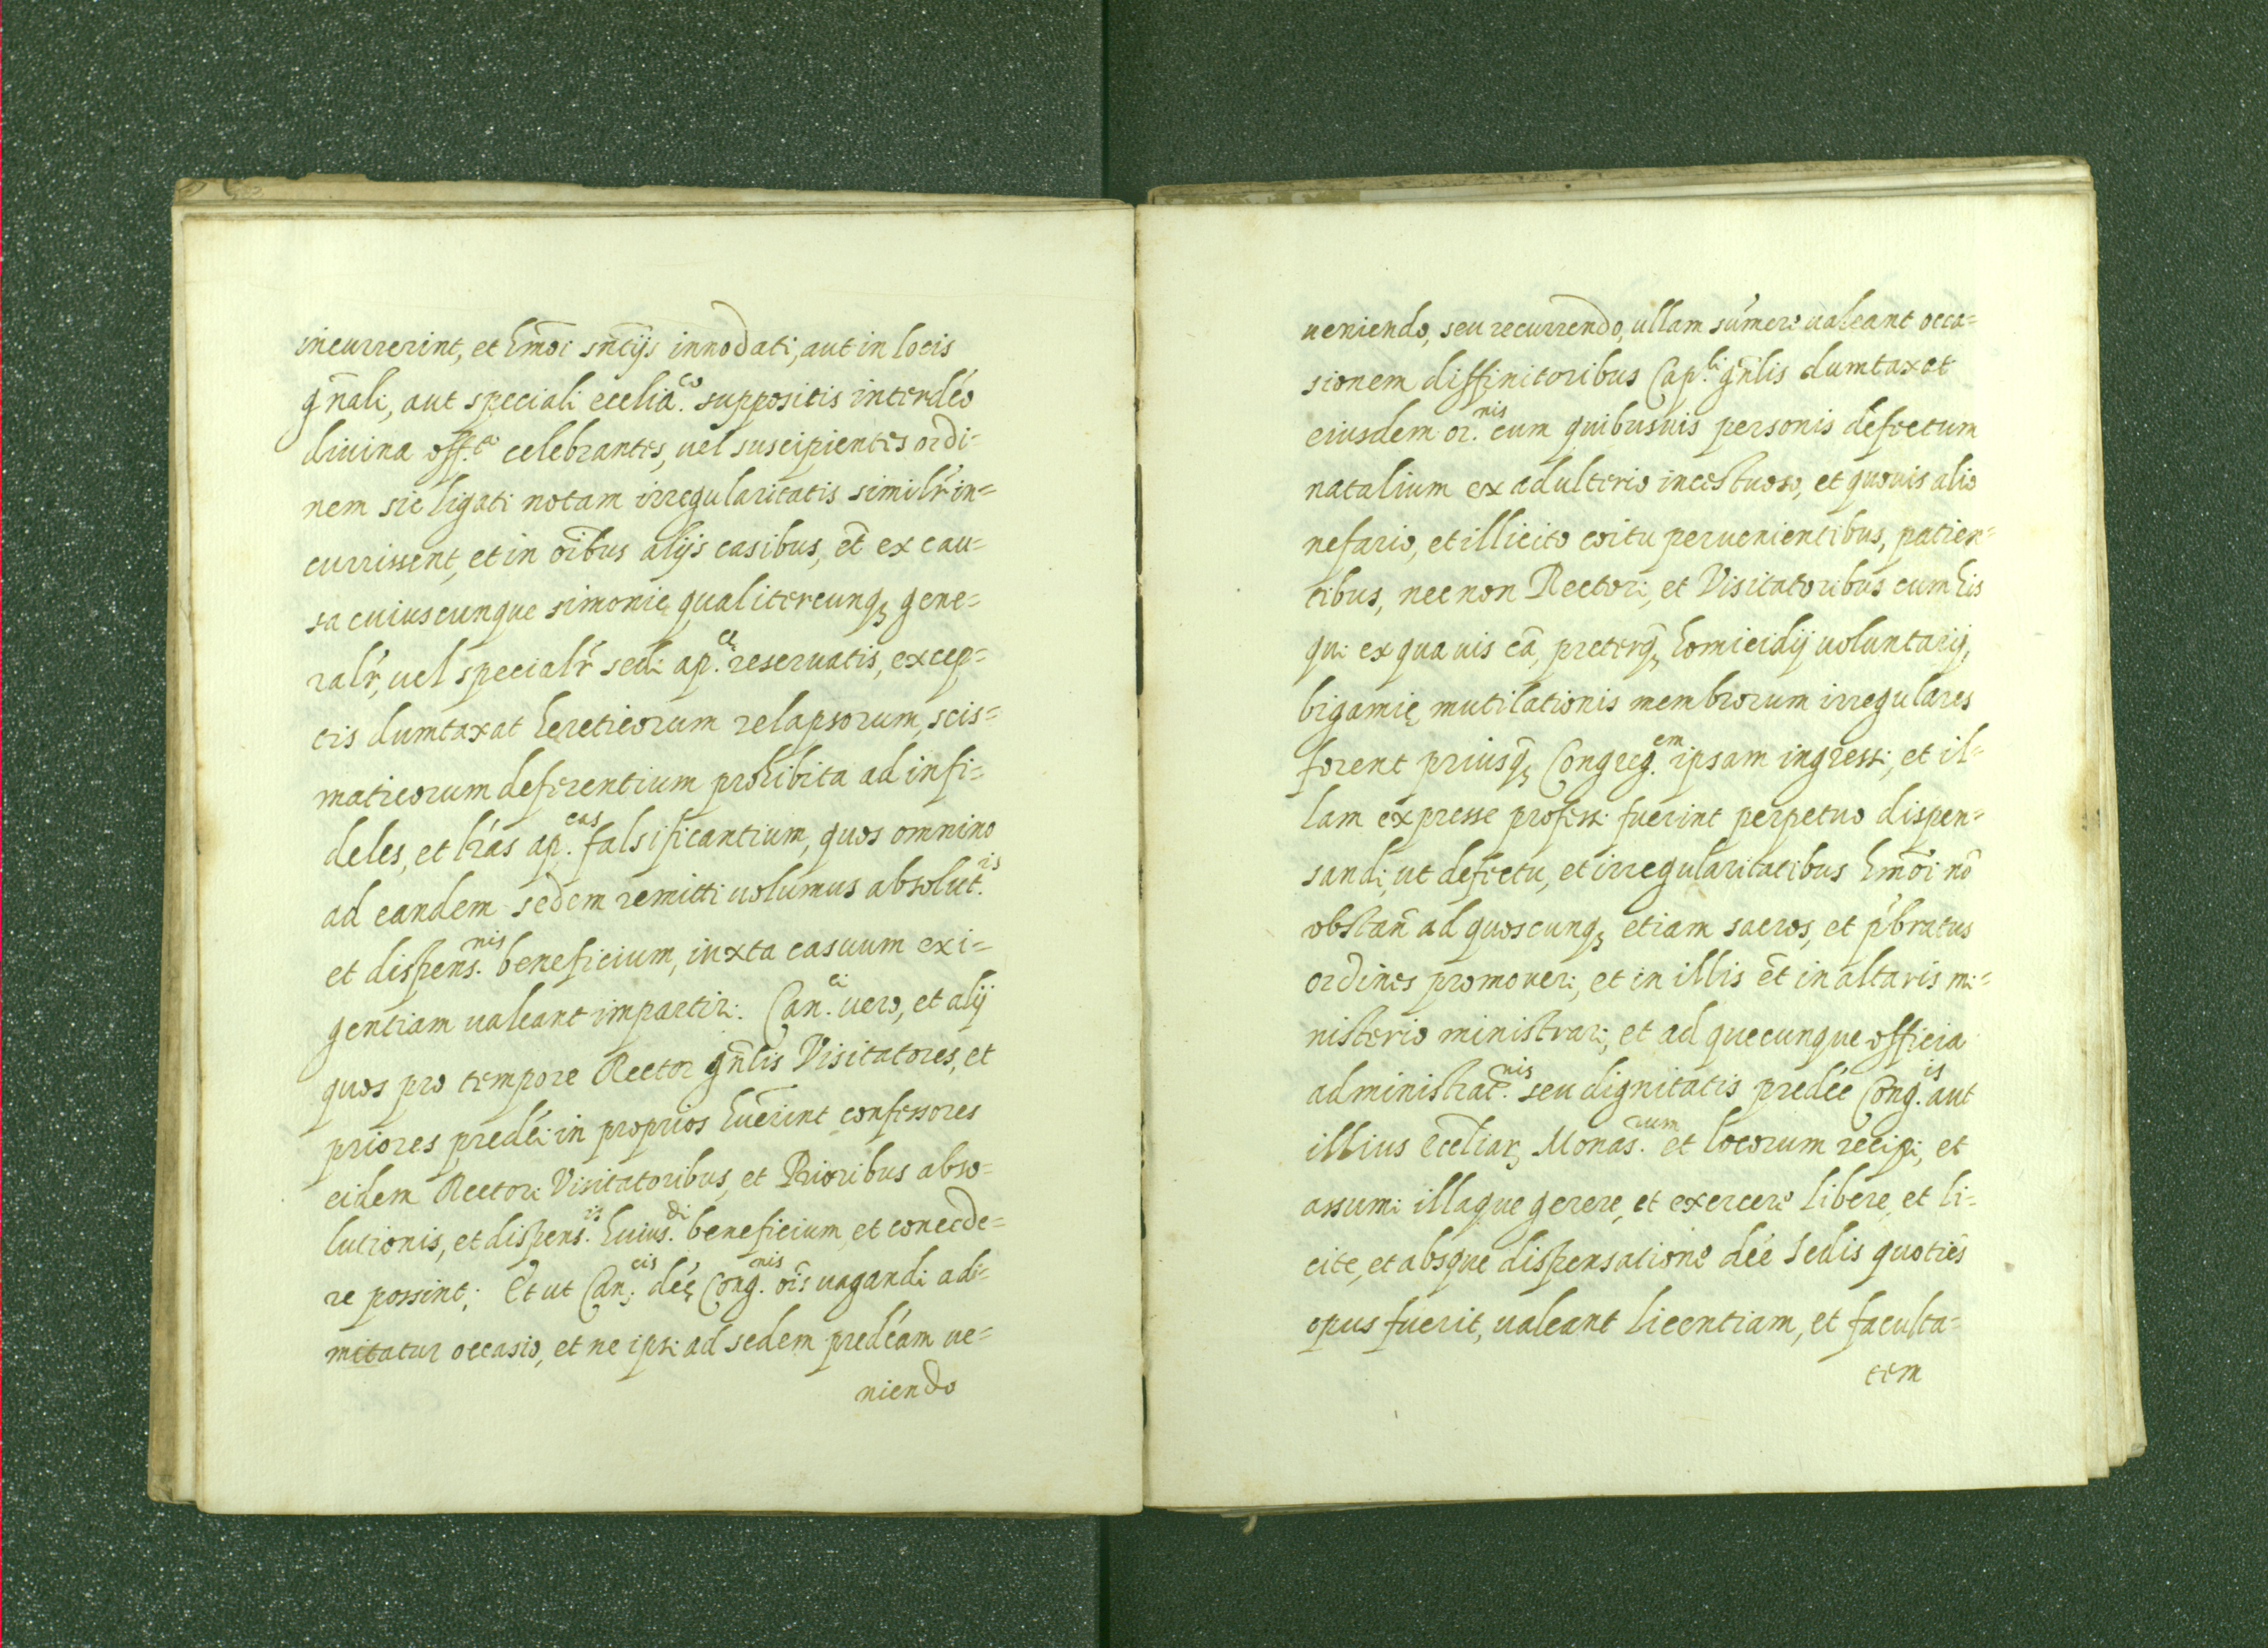 incurrerint, et hm̄oi sn̄tijs innodati, aut in locis
gn̄ali, aut speciali ecclia.co suppositis interdc̄o
diuina off.a celebrantes, uel suscipientes ordi=
nem sic ligati notam irregularitatis similr̄ in=
currissent, et in oībus alijs casibus, et̄ ex cau=
sa cuiuscunque simonię qualitercunqȝ gene=
ralr̄, uel specialr̄ sedi ap.ce reseruatis, excep=
tis dumtaxat hereticorum relapsorum, scis=
maticorum deferentium prohibita ad infi=
deles, et lr̄as ap.cas falsificantium, quos omnino
ad eandem sedem remitti uolumus absolut.is
et dispens.nis beneficium, iuxta casuum exi=
gentiam ualeant impartiri. Can.ci uero, et alij
quos pro tempore Rector gn̄lis Visitatores, et
priores predc̄i in proprios huērint confessores
eidem Rectori Visitatoribus, et Prioribus abso=
lutionis, et dispens.is huius.di beneficium, et concede=
re possint; Et ut Can.cis dc̄ę Cong.nis oīs uagandi adi=
mitatur occasio, et ne ipsi ad sedem predc̄am ue=
niendo
ueniendo, seu recurrendo, ullam súmere ualeant occa=
sionem diffinitoribus Cap.li gn̄lis dumtaxat
eiusdem or.nis cum quibusuis personis defectum
natalium ex adulterio incestuoso, et quouis alio
nefario, et illicito coitu peruenientibus, patien=
tibus, nec non Rectori, et Visitatoribus cum his
qui ex qua uis cā, preterqȝ homicidij uoluntarij,
bigamię mutilationis membrorum irregulares
forent priusqȝ Congreg.em ipsam ingressi, et il=
lam expresse professi fuerint perpetuo dispen=
sandi, ut defectu, et irregularitatibus hm̄oi nō
obstan̄ ad quoscunqȝ etiam sacros, et p̄bratus
ordines promoueri, et in illis et̄ in altaris mi=
nisterio ministrari, et ad quecunque officia
administrat.nis seu dignitatis predc̄e Cong.is aut
illius ecc̄liarȝ Monas.rum et locorum recipi, et
assumi illaque gerere, et exercere libere, et li=
cite, et absque dispensatione dc̄e Sedis quotiēs
opus fuerit, ualeant licentiam, et faculta=
tem